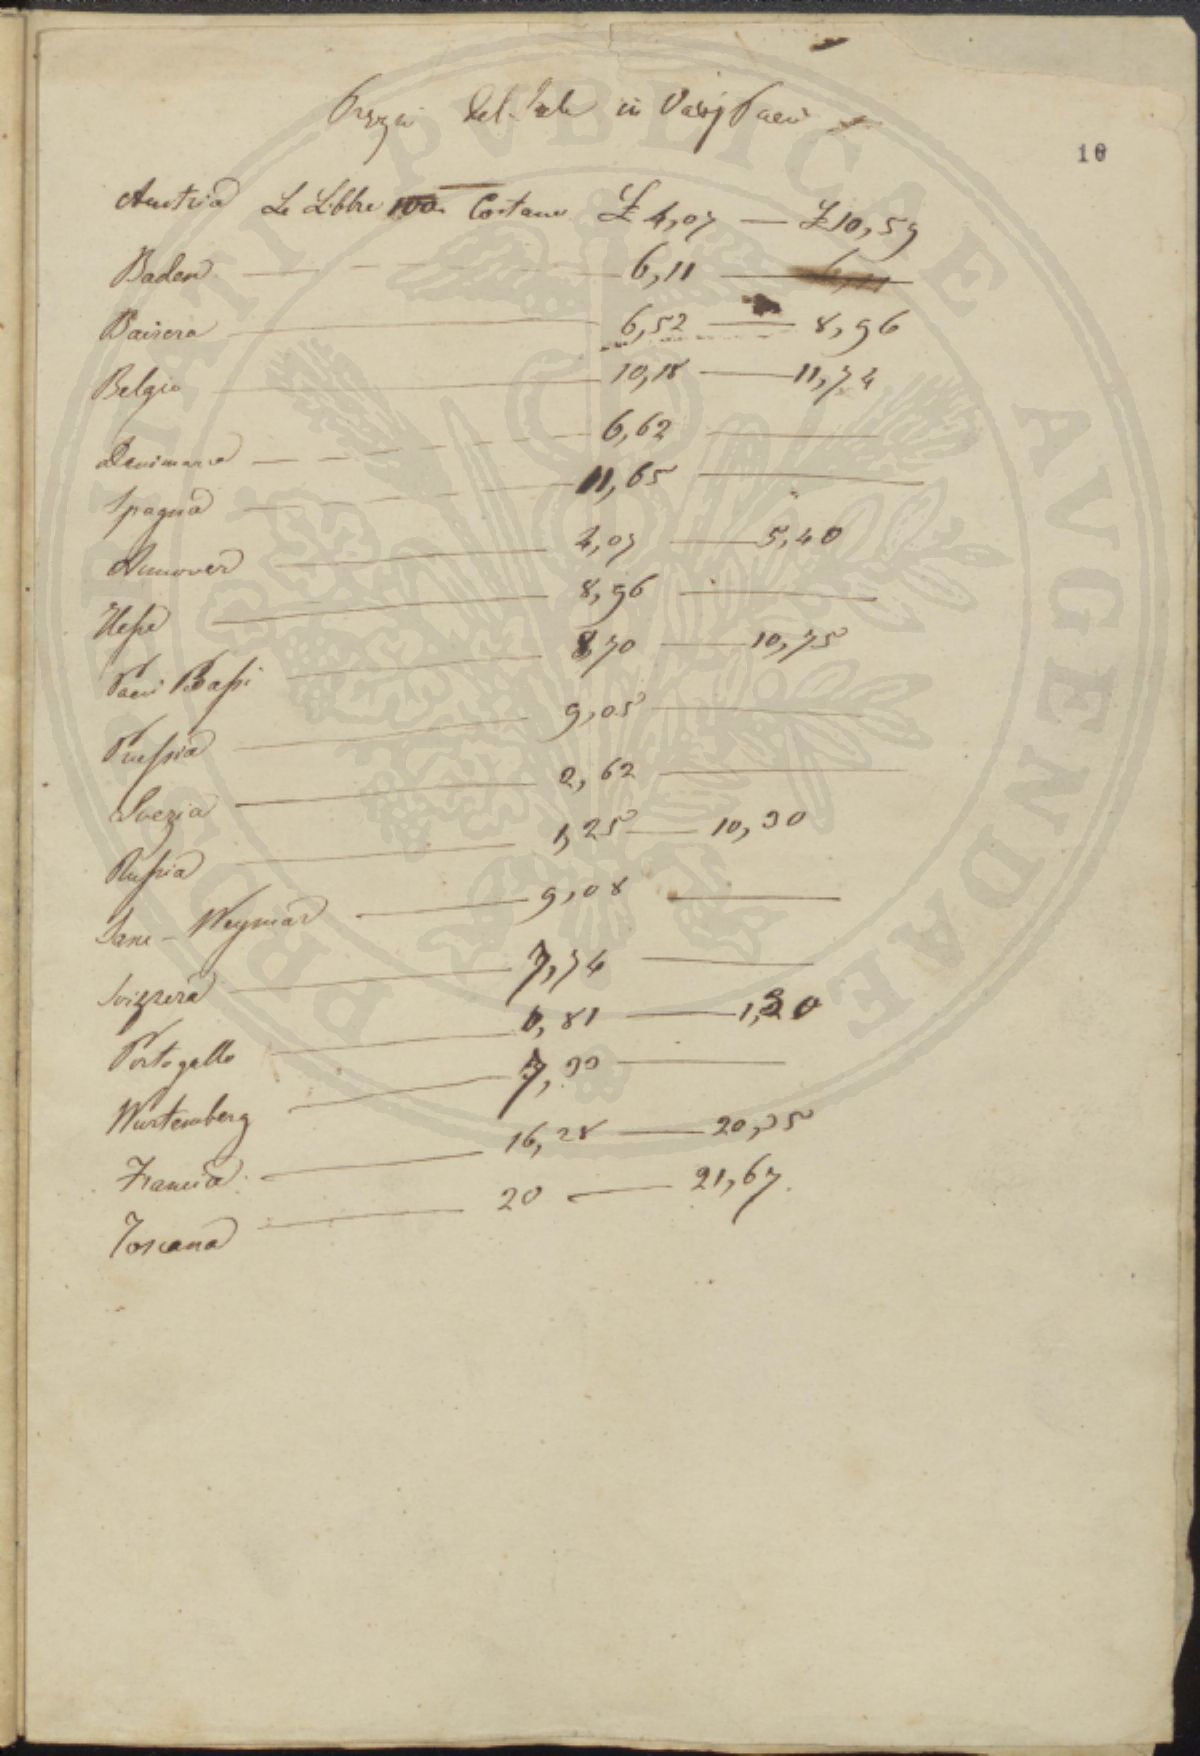 Prezzi del Sale in Varj Paesi
10
Austria Le Libbre 100 Costano £ 4,07 — £ 10,59
Baden — 6,11 — 6,11
Baviera — 6,52 — 8,96
Belgio — 10,18 — 11,74
Danimarca — 6,62 —
Spagna — 11,65 —
Annover — 4,07 — 5,40
Hesse — 8,96 —
Paesi Bassi — 8,70 — 10,75
Prussia — 9,05 —
Svezia — 2,62 —
Russia — 1,25 — 10,30
Saxe - Weymar — 9,08 —
Svizzera — 7,74 —
Portogallo — 0,81 — 1,30
Wurtemberg — 7,33 —
Francia — 16,28 — 20,35
Toscana — 20 — 21,67
PRISCA PRIVATI PVBLICAE AVGENDAE